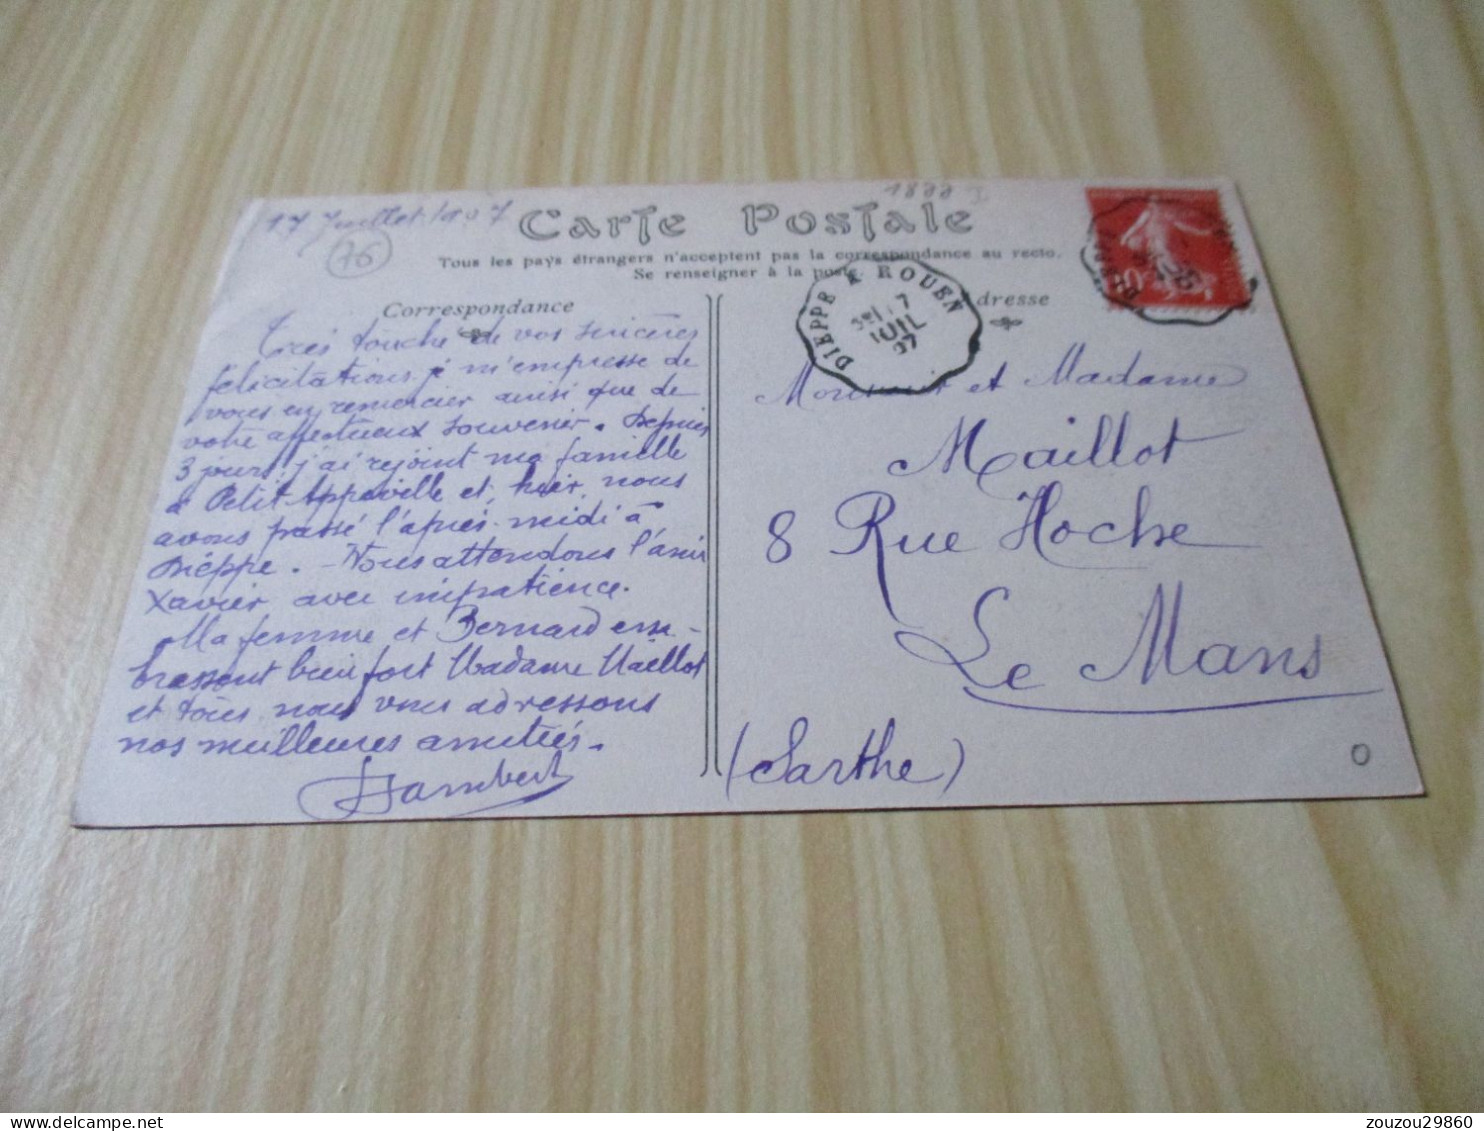 17 Juillet 1907
76
1877
Carte Postale
Tous les pays étrangers n'acceptent pas la correspondance au recto.
Se renseigner à la poste.
Correspondance
Adresse
DIEPPE A ROUEN
17
JUIL
07
10
Très touché de vos sincères
félicitations je m'empresse de
vous en remercier ainsi que de
votre affectueux souvenir. Depuis
3 jours j'ai rejoint ma famille
à Petit Appeville et, hier, nous
avons passé l'après-midi à
Dieppe. - Nous attendons l'ami
Xavier avec impatience.
Ma femme et Bernard em-
brassent bien fort Madame Maillot
et tous nous vous adressons
nos meilleures amitiés.
Hambert
Monsieur et Madame
Maillot
8 Rue Hoche
Le Mans
(Sarthe)
0
zouzou29860